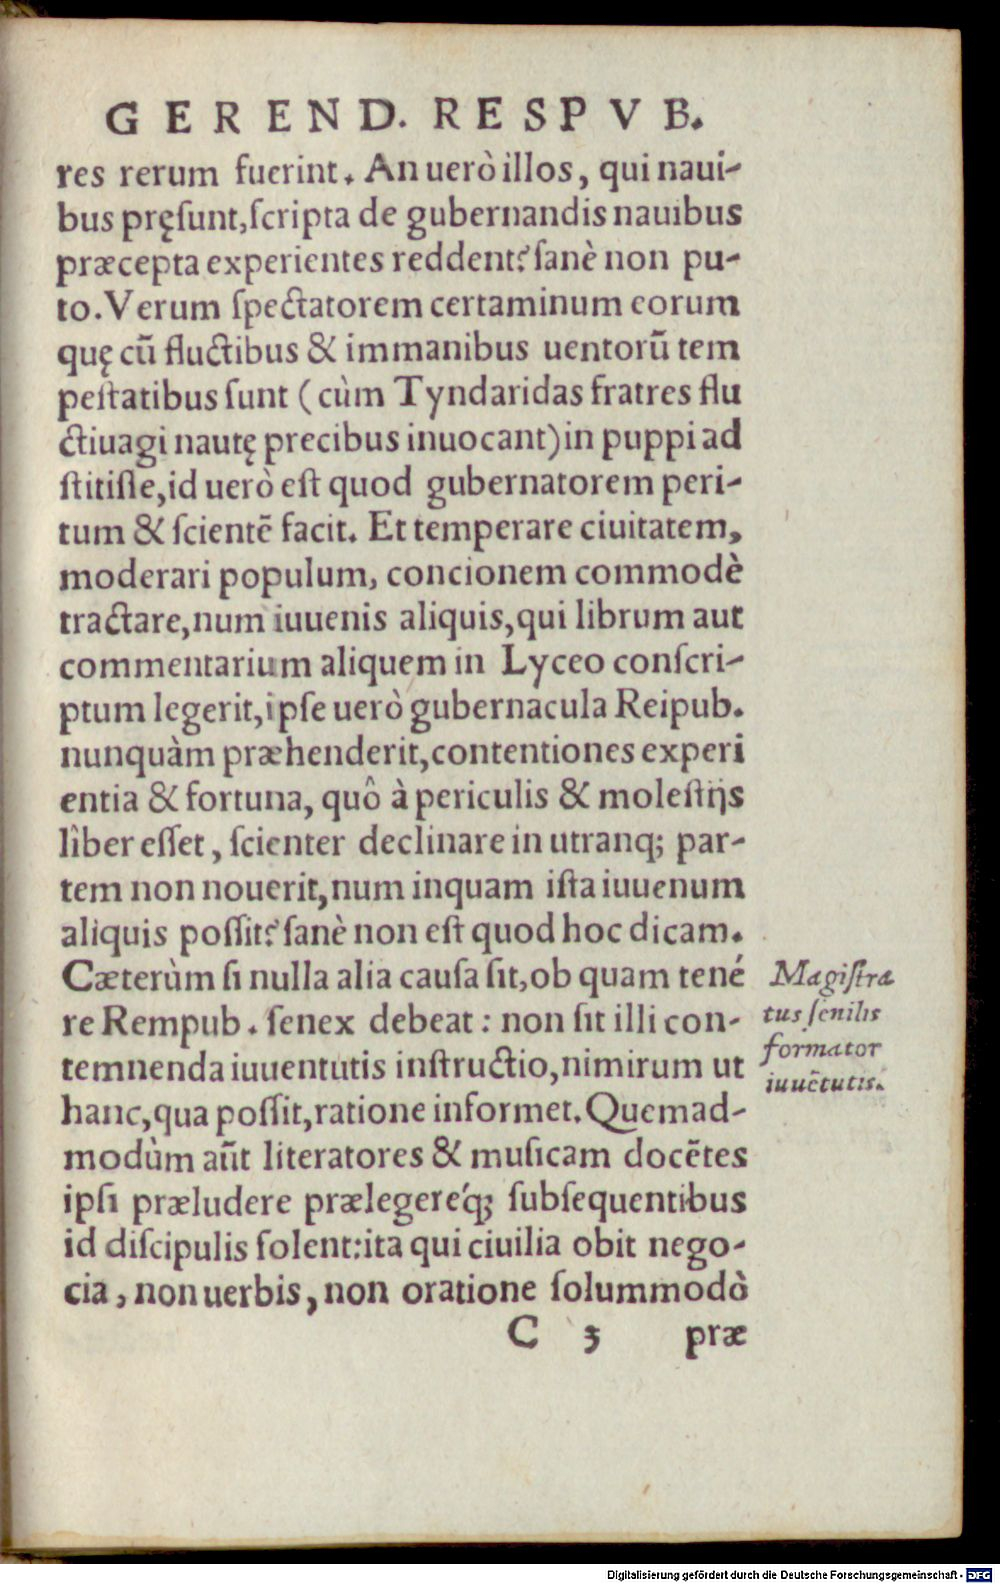 GEREND. RESPVB.
res rerum fuerint. An uerò illos, qui naui-
bus pręsunt, scripta de gubernandis nauibus
præcepta experientes reddent? sanè non pu-
to. Verum spectatorem certaminum eorum
quę cū fluctibus & immanibus uentorū tem
pestatibus sunt (cùm Tyndaridas fratres flu
ctiuagi nautę precibus inuocant) in puppi ad
stitisse, id uerò est quod gubernatorem peri-
tum & scientē facit. Et temperare ciuitatem,
moderari populum, concionem commodè
tractare, num iuuenis aliquis, qui librum aut
commentarium aliquem in Lyceo conscri-
ptum legerit, ipse uerò gubernacula Reipub.
nunquàm præhenderit, contentiones experi
entia & fortuna, quô à periculis & molestijs
lìber esset, scienter declinare in utranq; par-
tem non nouerit, num inquam ista iuuenum
aliquis possit? sanè non est quod hoc dicam.
Cæterùm si nulla alia causa sit, ob quam tené
re Rempub. senex debeat: non sit illi con-
temnenda iuuentutis instructio, nimirum ut
hanc, qua possit, ratione informet. Quemad-
modùm aūt literatores & musicam docētes
ipsi præludere prælegereq́; subsequentibus
id discipulis solent: ita qui ciuilia obit nego-
cia, non uerbis, non oratione solummodò
C 3 præ
Magistra
tus senilis
formator
iuuētutis.
Digitalisierung gefördert durch die Deutsche Forschungsgemeinschaft - DFG